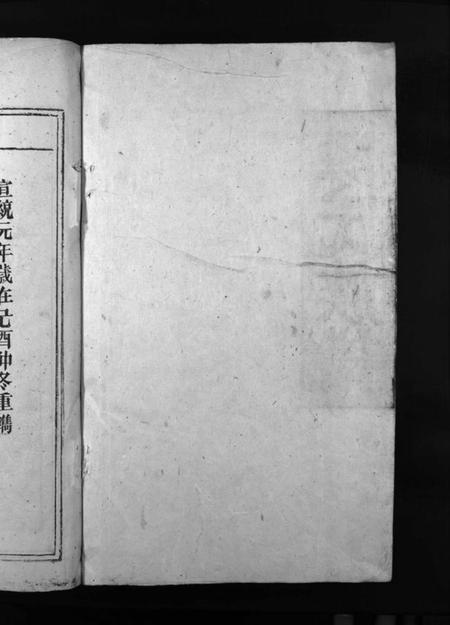 宣統元年歲在己酉仲冬重鐫